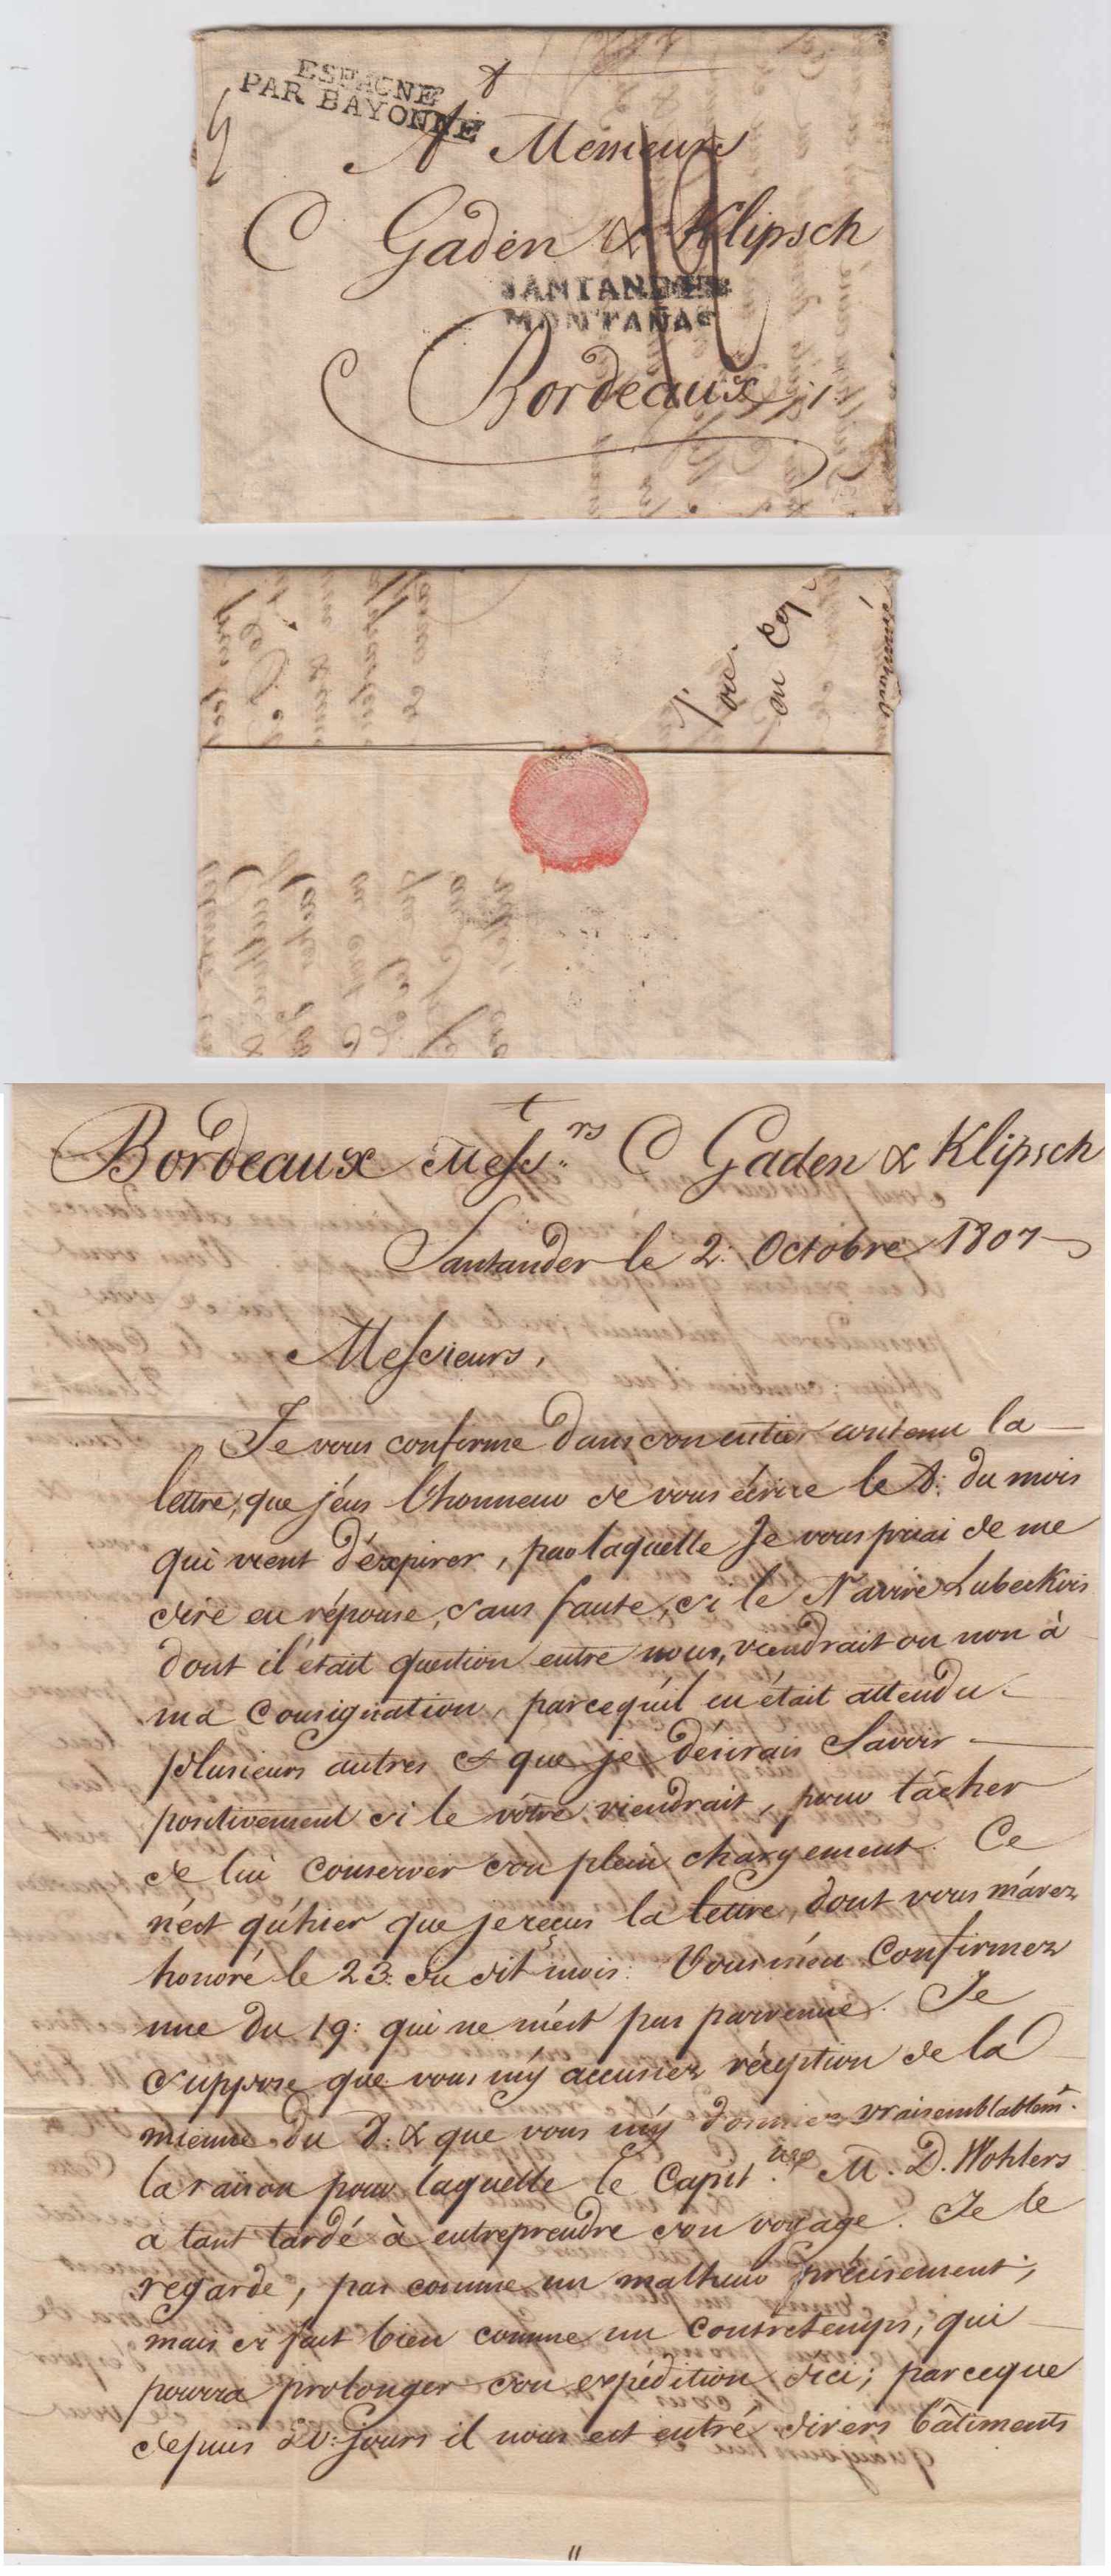 ESPAGNE
PAR BAYONNE
A Messieurs
C Gaden & Klipsch
SANTANDER
MONTAÑAS
Bordeaux
Bordeaux Messrs C Gaden & Klipsch
Santander le 2: Octobre 1807
Messieurs,
Je vous confirme dans son entier contenu la
lettre, que j'eus l'honneur de vous écrire le 8: du mois
qui vient d'éxpirer, par laquelle Je vous priai de me
dire en réponse, sans faute, si le Navire Lubeckois
dont il était question entre nous, viendrait ou non à
ma Consignation, parcequ'il en était attendu
plusieurs autres & que je désirais Savoir
positivement si le vôtre viendrait, pour tâcher
de lui Conserver son plein chargement. Ce
n'est qu'hier que je reçus la lettre, dont vous m'avez
honoré le 23: du dit mois. Vous m'en Confirmez
une du 19: qui ne m'est pas parvenue. Je
suppose que vous m'y accusiez réception de la
mienne du 8: & que vous m'y donniez vraisemblablemt.
la raison pour laquelle le Capit. M. D. Wohlers
a tant tardé à entreprendre son voyage. Je le
regarde, pas comme un malheur précisement,
mais si fait bien comme un Contretemps, qui
pourra prolonger son expédition d'ici; parceque
depuis jours il nous est entré divers bâtiments
"